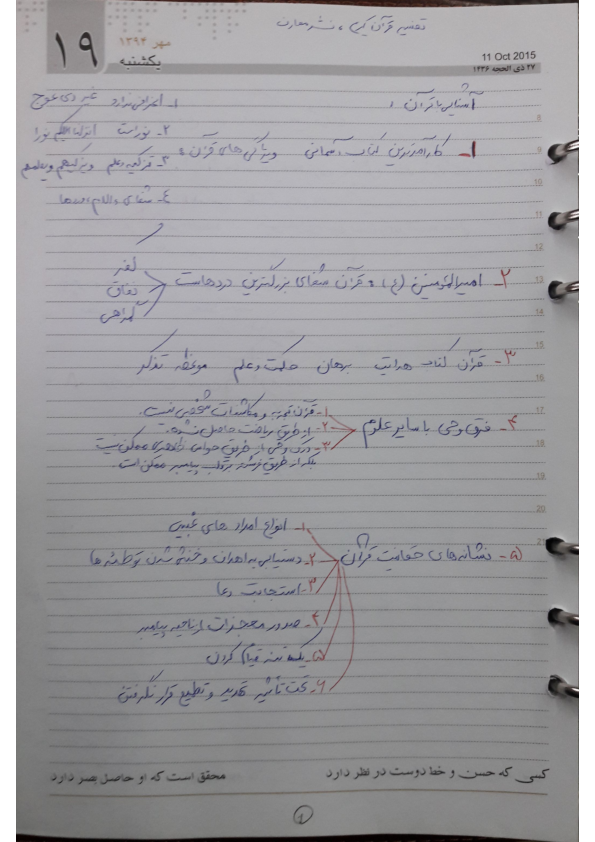 تفسیر قرآن کریم، نشر معارف
۱۹
مهر ۱۳۹۴
یکشنبه
11 Oct 2015
۲۷ ذی الحجه ۱۴۳۶
آشنایی با قرآن:
۱- کارآمدترین کتاب آسمانی ویژگی های قرآن:
۱- انحرافی ندارد غیر ذی عوج
۲- نور است انزلنا الیکم نورا
۳- تزکیه و علم و یزکیهم و یعلمهم
۴- شفای
۲- امیرالمؤمنین (ع): قرآن شفای بزرگترین دردهاست
کفر
نفاق
گمراهی
۳- قرآن کتاب هدایت برهان حکمت و علم موعظه تذکر
۴- فرق وحی با سایر علوم
۱- قرآن تجربه و مکاشفات شخصی نیست.
۲- از طریق ریاضت حاصل نشده.
۳- درک وحی از طریق حواس ظاهری ممکن نیست
بلکه از طریق فرشته بر قلب پیامبر ممکن است.
۵- نشانه های حقانیت قرآن
۱- انواع امداد های غیبی
۲- دستیابی به اهداف و خنثی شدن توطئه ها
۳- استجابت دعا
۴- صدور معجزات از ناحیه پیامبر
۵- یک تنه قیام کردن
۶- تحت تأثیر تهدید و تطمیع قرار نگرفتن
کسی که حسن و خط دوست در نظر دارد محقق است که او حاصل بصر دارد
۱
8
9
10
11
12
13
14
15
16
17
18
19
20
21